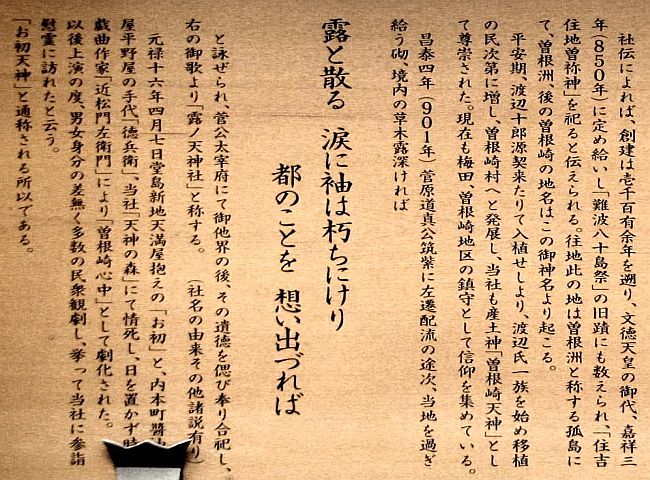 社伝によれば、創建は壱千百有余年を遡り、文徳天皇の御代、嘉祥三
年(850年)に定め給いし「難波八十島祭」の旧蹟にも数えられ、「住吉
住地曽祢神」を祀ると伝えられる。往地此の地は曽根洲と称する孤島に
て、曽根洲、後の曽根崎の地名はこの御神名より起こる。
平安期、渡辺十郎源契来たりて入植せしより、渡辺氏一族を始め移植
の民次第に増し、曽根崎村へと発展し、当社も産土神「曽根崎天神」とし
て尊崇された。現在も梅田、曽根崎地区の鎮守として信仰を集めている。
昌泰四年(901年)菅原道真公筑紫に左遷配流の途次、当地を過ぎ
給う砌、境内の草木露深ければ
露と散る 涙に袖は朽ちにけり
都のことを 想い出づれば
と詠ぜられ、菅公太宰府にて御他界の後、その遺徳を偲び奉り合祀し、
右の御歌より「露ノ天神社」と称する。 (社名の由来その他諸説有り)
元禄十六年四月七日堂島新地天満屋抱えの「お初」と、内本町醬油
屋平野屋の手代「徳兵衛」、当社「天神の森」にて情死し、日を置かず時
戯曲作家「近松門左衛門」により「曽根崎心中」として劇化された。
以後上演の度、男女身分の差無く多数の民衆観劇し、挙って当社に参詣
慰霊に訪れたと云う。
「お初天神」と通称される所以である。